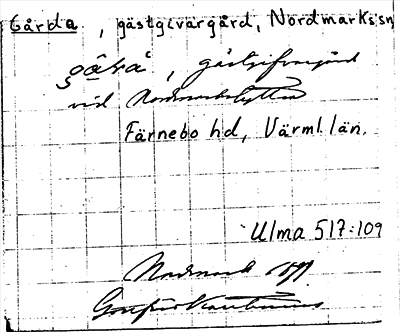 Gårda, gästgivargård, Nordmarks sn
gästgifvaregård
vid Nordmarkshyttan
Färnebo hd, Värml. län.
Ulma 517:109
Nordmark